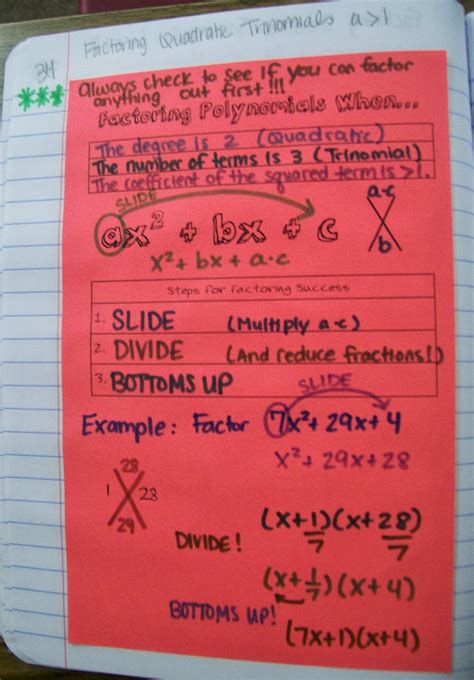 Factoring Quadratic Trinomials a>1
34
***
Always check to see if you can factor
anything out first!!!
Factoring Polynomials When...
The degree is 2 (Quadratic)
The number of terms is 3 (Trinomial)
The coefficient of the squared term is >1.
SLIDE
ax² + bx + c
a·c
b
x² + bx + a·c
Steps for Factoring Success
1. SLIDE (Multiply a·c)
2. DIVIDE (And reduce fractions!)
3. BOTTOMS UP
SLIDE
Example: Factor 7x² + 29x + 4
x² + 29x + 28
28
1 28
29
(x+1/7)(x+28/7)
DIVIDE!
(x+1/7)(x+4)
BOTTOMS UP!
(7x+1)(x+4)